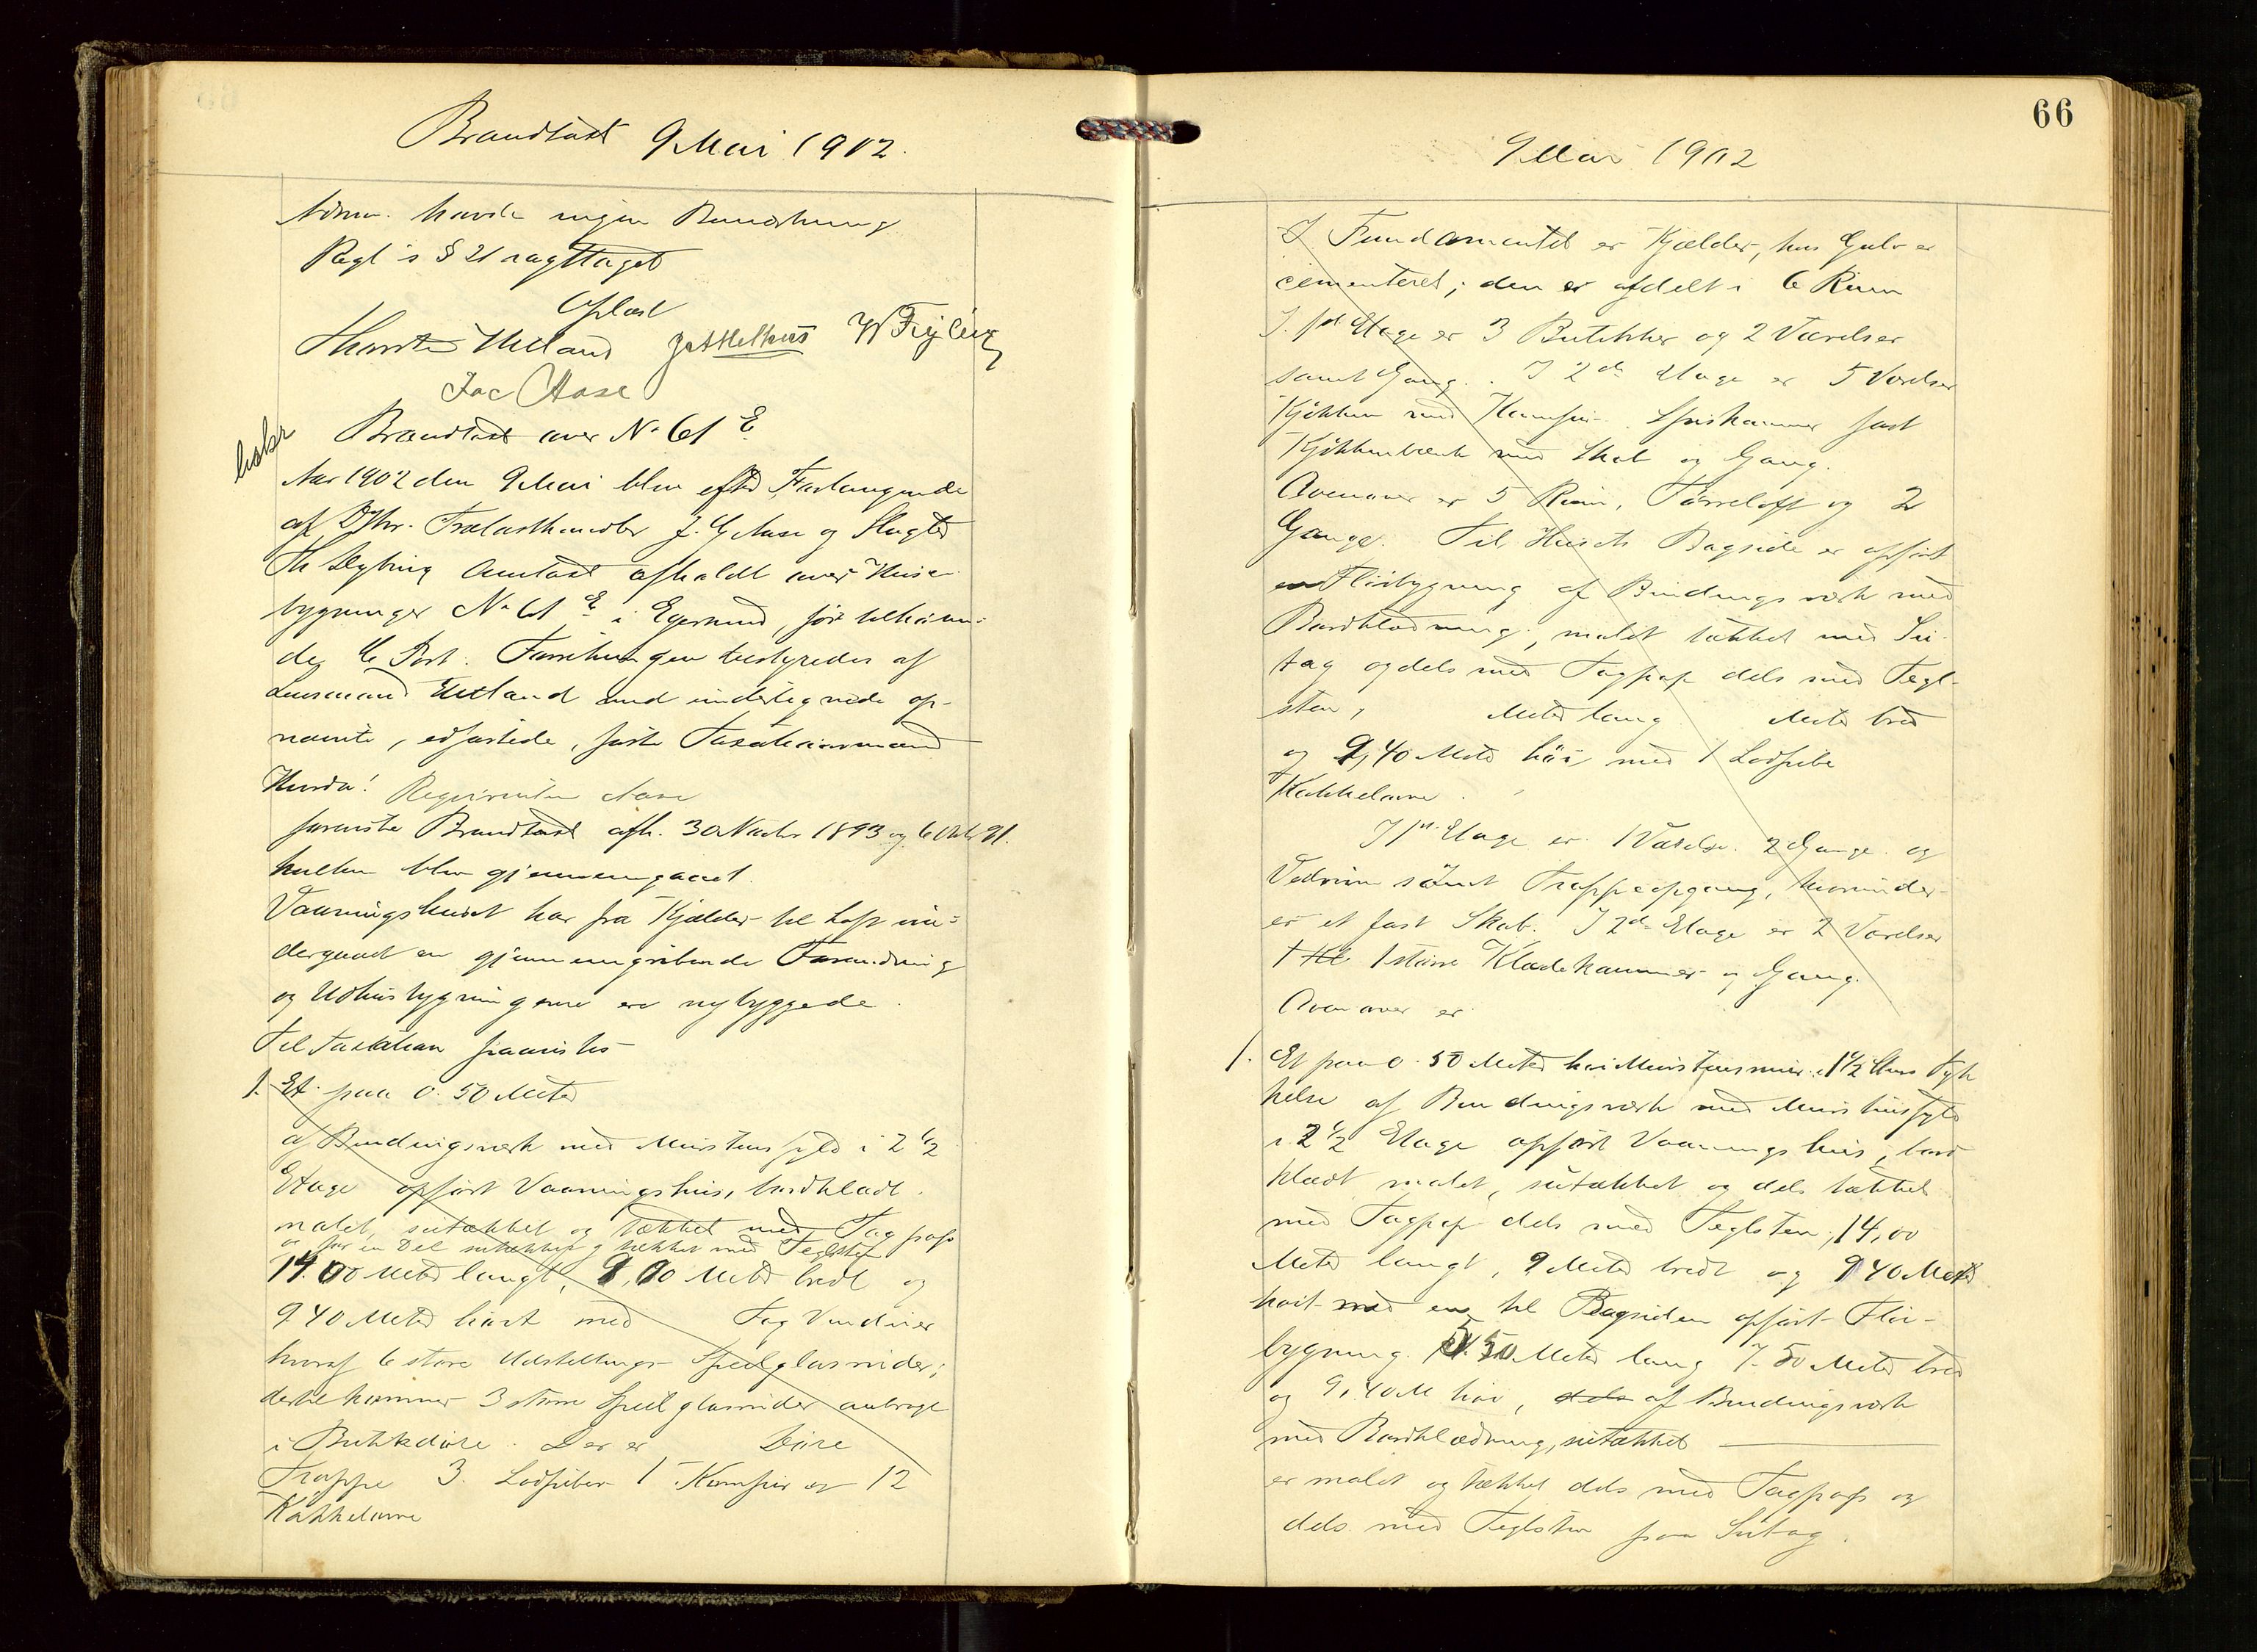 Brandtaxt 9 Mai 1902.
Adm. havde ingen Bemærkning
Regl's § 21 iagttaget
Oplæst
W Fejling
Jac Aase
beskr
Brandtaxt over No 61 E
Aar 1902 den 9 Mai blev efter Forlangende
af DHrr. Trælasthandler J. G. Aase og Slagter
Th Age omtaxt afholdt over Huse
bygninger No 61 E i Egersund, før tilhøren-
de C. Port. Forretningen bestyredes af
Lensmand Hetland med undertegnede op-
nævnte, edfæstede, faste Taxationsmænd
Hvorda! Requirenten Aase
foreviste Brandtaxt afh. 30 1893 og 6 Okt 91.
hvilken blev gjennemgaaet.
Vaaningshuset har fra Kjælder til Loft un-
dergaaet en gjennemgribende Forandring
og Udhusbygningerne ere nybyggede.
Til Taxation fremvistes
1. Et paa 0.50 Meter
af Bindingsværk med Murstensfyld i 2 1/2
Etage opført Vaaningshus, bordklædt
malet, sutækket og tækket med Tagpap
og for en Del sutækket og tækket med Teglsten
14.00 Meter langt, 9,00 Meter bredt og
9 40 Meter høit med Fag Vinduer
hvoraf 6 store Udstillings Speilglasruder;
dertil kommer 3 større Speilglasruder anbragt
i Butikdøre. Der er Døre
Trappe 3 Lodpiber 1 Komfur og 12
Kakkelovne
66
9 Mai 1902
I Fundamentet er Kjælder, hvis Gulv er
cementeret; den er afdelt i 6 Rum
I 1st Etage er 3 Butikker og 2 Værelser
samt Gang. I 2den Etage er 5 Værelser
Kjøkken med Komfur Spiskammer fast
Kjøkkenbænk med Skab og Gang.
Ovenover er 5 Rum, Tørreloft og 2
Gange. Til Husets Bagside er opført
en Fløibygning af Bindingsværk med
Bordklædning, malet tækket med Su-
tag og dels med Tagpap dels med Tegl-
sten, Meter lang Meter bred
og 9,40 Meter høi med 1 Lodpibe
Kakkelovne.
I 1st Etage er 1 Værelse 2 Gange og
Vedrum samt Trappeopgang, hvorunder
er et fast Skab. I 2den Etage er 2 Værelser
1 Kl 1 større Klædekammer og Gang.
Ovenover er
1. Et paa 0.50 Meter høi Murstensmur i 1 1/2 Stens Tyk
kelse af Bindingsværk med Murstensfyld
i 2 1/2 Etage opført Vaaningshus, bord
klædt malet, sutækket og dels tækket
med Tagpap dels med Teglsten, 14,00
Meter langt, 9 Meter bredt og 9 40 Meter
høit med en til Bagsiden opført Fløi-
bygning 5.50 Meter lang 7.50 Meter bred
og 9,40 M høi, dels af Bindingsværk
med Bordklædning, sutækket
er malet og tækket dels med Tagpap og
dels med Teglsten paa Sutag.